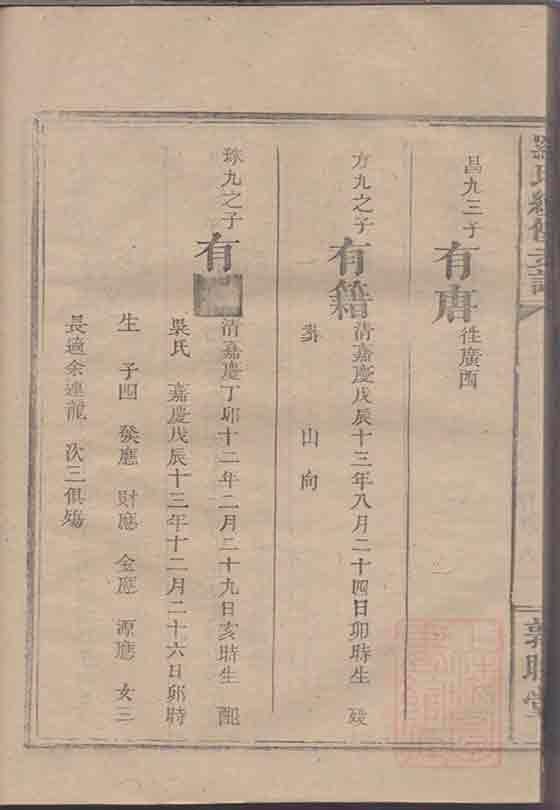 昌九三子
有唐
徃廣西
方九之子
有籍
清嘉慶戊辰十三年八月二十四日卯時生 歿
葬 山向
珠九之子
有
清嘉慶丁卯十二年二月二十九日亥時生 配
吳氏 嘉慶戊辰十三年十二月二十六日卯時
生 子四 發應 財應 金應 源應 女三
長適余連龍 次三俱殤